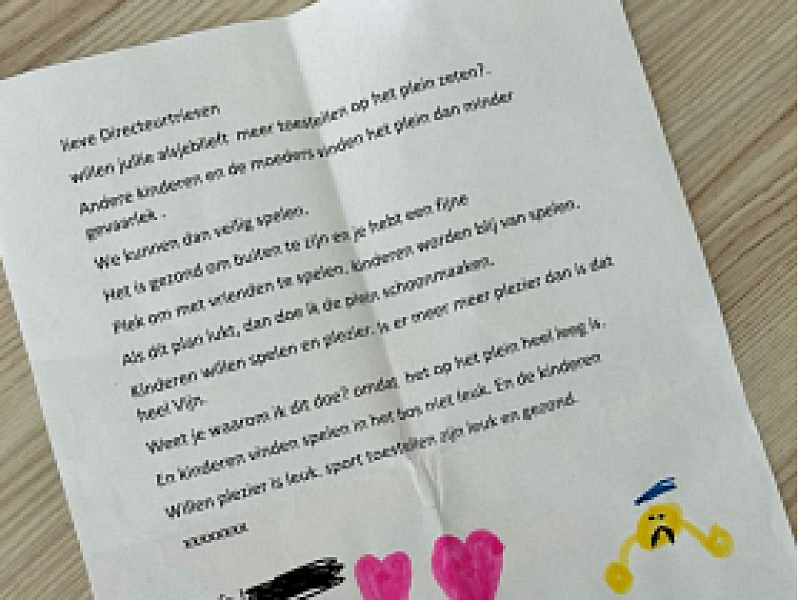 lieve Directeurtriesen
willen jullie alsjeblieft meer toestellen op het plein zeten?.
Andere kinderen en de moeders vinden het plein dan minder
gevaarlek .
We kunnen dan veilig spelen.
Het is gezond om buiten te zijn en je hebt een fijne
Plek om met vrienden te spelen, kinderen worden blij van spelen.
Als dit plan lukt, dan doe ik de plein schoonmaaken.
Kinderen willen spelen en plezier. is er meer meer plezier dan is dat
heel Vijn.
Weet je waarom ik dit doe? omdat het op het plein heel leeg is.
En kinderen vinden spelen in het bos niet leuk. En de kinderen
Willen plezier is leuk. sport toestellen zijn leuk en gezond.
xxxxxxxx